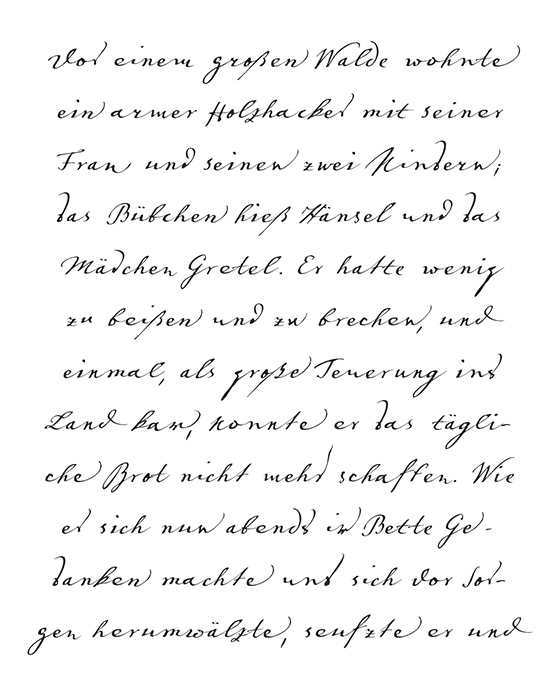 Vor einem großen Walde wohnte
ein armer Holzhacker mit seiner
Frau und seinen zwei Kindern;
das Bübchen hieß Hänsel und das
Mädchen Gretel. Er hatte wenig
zu beißen und zu brechen, und
einmal, als große Teuerung ins
Land kam, konnte er das tägli-
che Brot nicht mehr schaffen. Wie
er sich nun abends im Bette Ge-
danken machte und sich vor Sor-
gen herumwälzte, seufzte er und